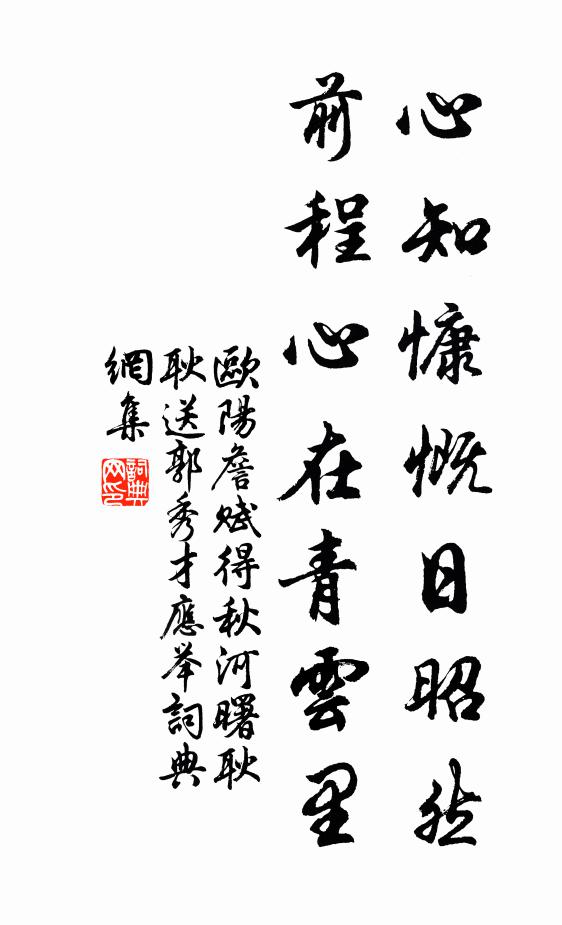 心知慷慨日昭然
前程心在青雲里
歐陽詹賦得秋河曙耿
耿送郭秀才應举詞典
網集
詞典網印